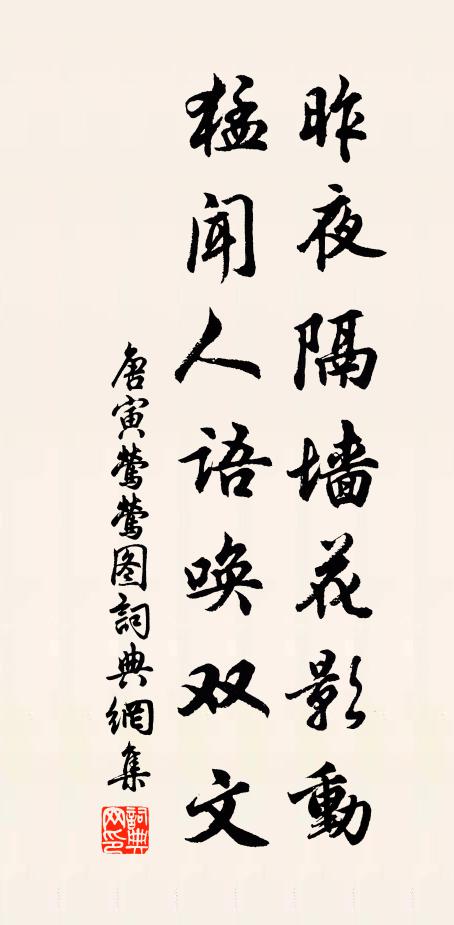 昨夜隔墙花影動
猛闻人语唤双文
唐寅莺莺图詞典網集
詞典网印